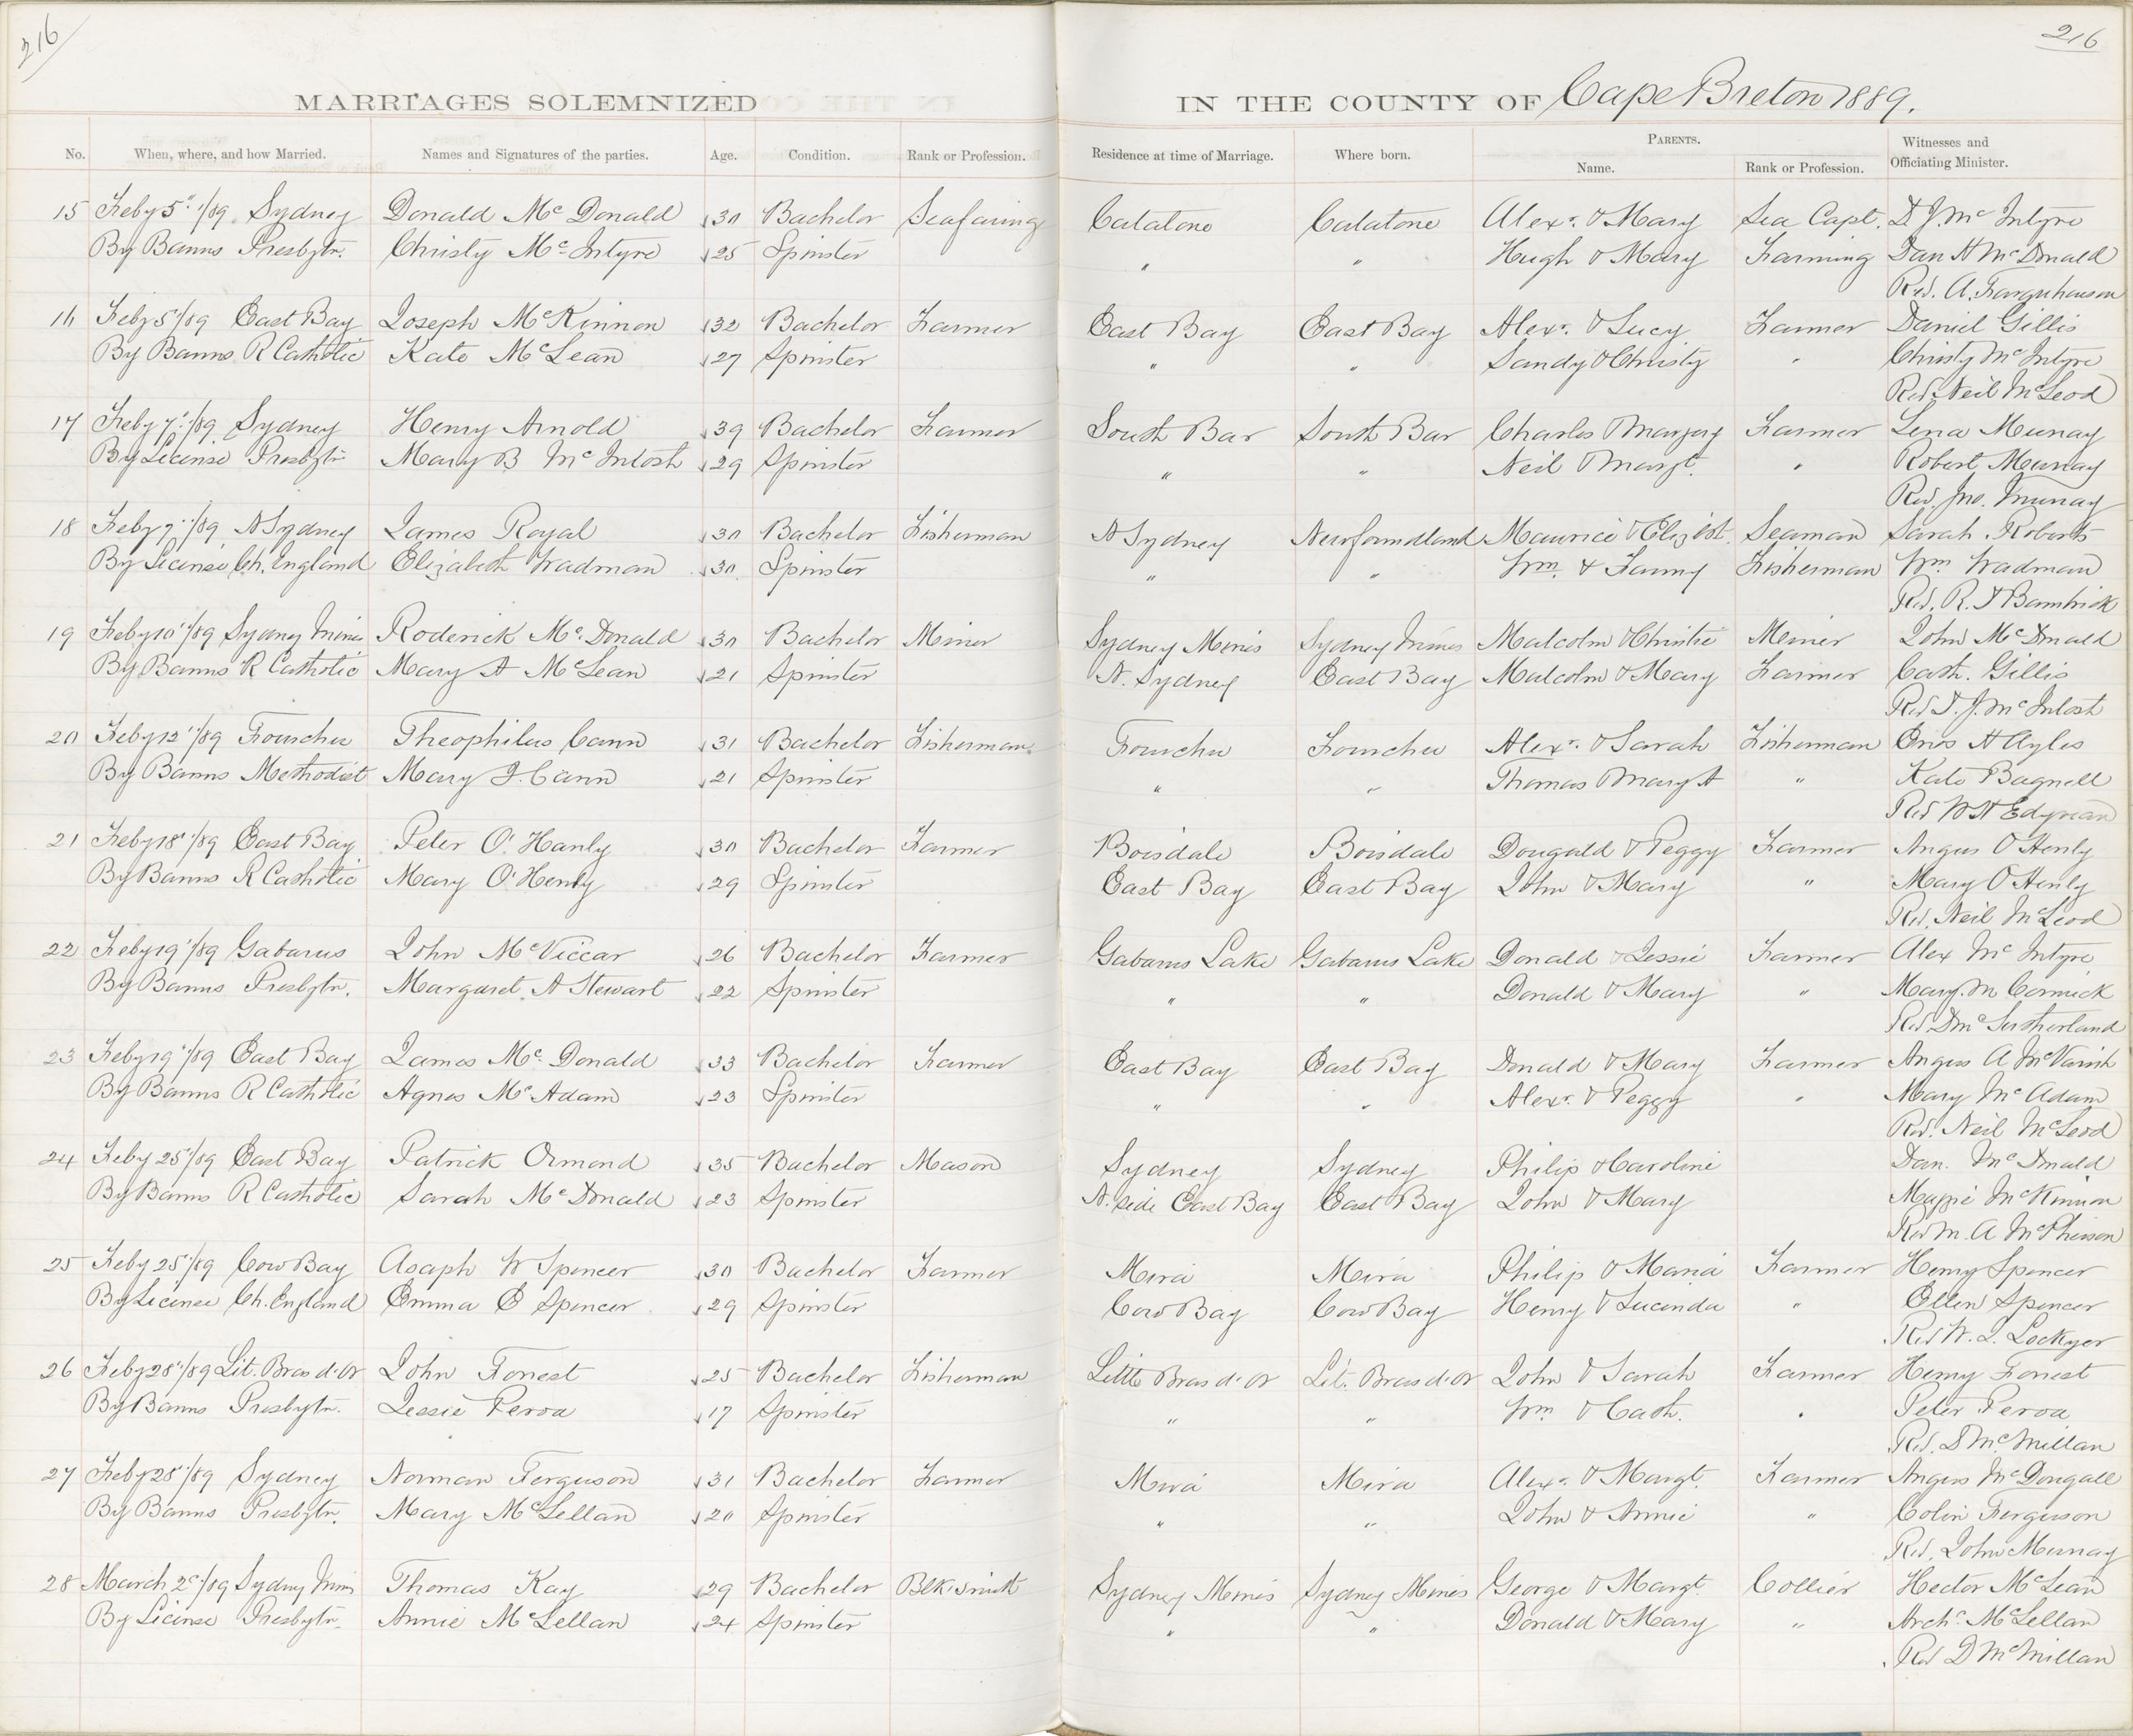 216
216
MARRIAGES SOLEMNIZED IN THE COUNTY OF Cape Breton 1889.
No. When, where, and how Married. Names and Signatures of the parties. Age. Condition. Rank or Profession. Residence at time of Marriage. Where born. PARENTS. Name. Rank or Profession. Witnesses and Officiating Minister.
15 Feby 5"/89 Sydney Donald Mc Donald 30 Bachelor Seafaring Catalone Catalone Alexr. & Mary Sea Capt. D J. Mc Intyre
By Banns Presbytn. Christy Mc Intyre 25 Spinster " " Hugh & Mary Farming Dan H McDonald
Rev. A. Farquharson
16 Feby 5"/89 East Bay Joseph McKinnon 32 Bachelor Farmer East Bay East Bay Alexr. & Lucy Farmer Daniel Gillis
By Banns R Catholic Kate McLean 27 Spinster " " Sandy & Christy " Christy McIntyre
Rev. Neil McLeod
17 Feby 7"/89 Sydney Henry Arnold 39 Bachelor Farmer South Bar South Bar Charles & Margery Farmer Lena Murray
By License Presbytn Mary B McIntosh 29 Spinster " " Neil & Margt. " Robert Murray
Rev. Jno. Murray
18 Feby 7"/89 N Sydney James Royal 30 Bachelor Fisherman N Sydney Newfoundland Maurice & Elizbt. Seaman Sarah Roberts
By License Ch. England Elizabeth Wadman 30 Spinster " " Wm. & Fanny Fisherman Wm Wadman
Rev. R. D Bambrick
19 Feby 10"/89 Sydney Mines Roderick Mc. Donald 30 Bachelor Miner Sydney Mines Sydney Mines Malcolm & Christie Miner John McDonald
By Banns R Catholic Mary A McLean 21 Spinster N. Sydney East Bay Malcolm & Mary Farmer Cath. Gillis
Rev D. J. McIntosh
20 Feby 12"/89 Fourchu Theophilus Cann 31 Bachelor Fisherman Fourchu Fourchu Alexr. & Sarah Fisherman Enos H Ayles
By Banns Methodist Mary J. Cann 21 Spinster " " Thomas & Mary A " Kate Bagnell
Rev W H Edyvean
21 Feby 18"/89 East Bay Peter O'Hanly 30 Bachelor Farmer Boisdale Boisdale Dougald & Peggy Farmer Angus O'Henly
By Banns R Catholic Mary O'Henly 29 Spinster East Bay East Bay John & Mary " Mary O'Henly
Rev. Neil McLeod
22 Feby 19"/89 Gabarus John McViccar 26 Bachelor Farmer Gabarus Lake Gabarus Lake Donald & Jessie Farmer Alex McIntyre
By Banns Presbytn. Margaret A Stewart 22 Spinster " " Donald & Mary " Mary McCormick
Rev D Mc Sutherland
23 Feby 19"/89 East Bay James Mc. Donald 33 Bachelor Farmer East Bay East Bay Donald & Mary Farmer Angus A McVarish
By Banns R Catholic Agnes McAdam 23 Spinster " " Alexr. & Peggy " Mary McAdam
Rev. Neil McLeod
24 Feby 25"/89 East Bay Patrick Ormond 35 Bachelor Mason Sydney Sydney Philip & Caroline Dan. McDonald
By Banns R Catholic Sarah McDonald 23 Spinster N. side East Bay East Bay John & Mary Maggie McKinnon
Rev M. A McPherson
25 Feby 25"/89 Cow Bay Asaph W Spencer 30 Bachelor Farmer Mira Mira Philip & Maria Farmer Henry Spencer
By License Ch. England Emma E Spencer 29 Spinster Cow Bay Cow Bay Henry & Lucinda " Ellen Spencer
Rev W. J. Lockyer
26 Feby 28"/89 Lit. Bras d'Or John Forrest 25 Bachelor Fisherman Little Bras d'Or Lit. Bras d'Or John & Sarah Farmer Henry Forrest
By Banns Presbytn. Jessie Peroa 17 Spinster " " Wm & Cath. " Peter Peroa
Rev. D McMillan
27 Feby 28"/89 Sydney Norman Ferguson 31 Bachelor Farmer Mira Mira Alexr. & Margt. Farmer Angus McDougall
By Banns Presbytn. Mary McLellan 20 Spinster " " John & Annie " Colin Ferguson
Rev. John Murray
28 March 2"/89 Sydney Mines Thomas Kay 29 Bachelor Blk smith Sydney Mines Sydney Mines George & Margt. Collier Hector McLean
By License Presbytn. Annie McLellan 24 Spinster " " Donald & Mary " Arch. McLellan
Rev D McMillan